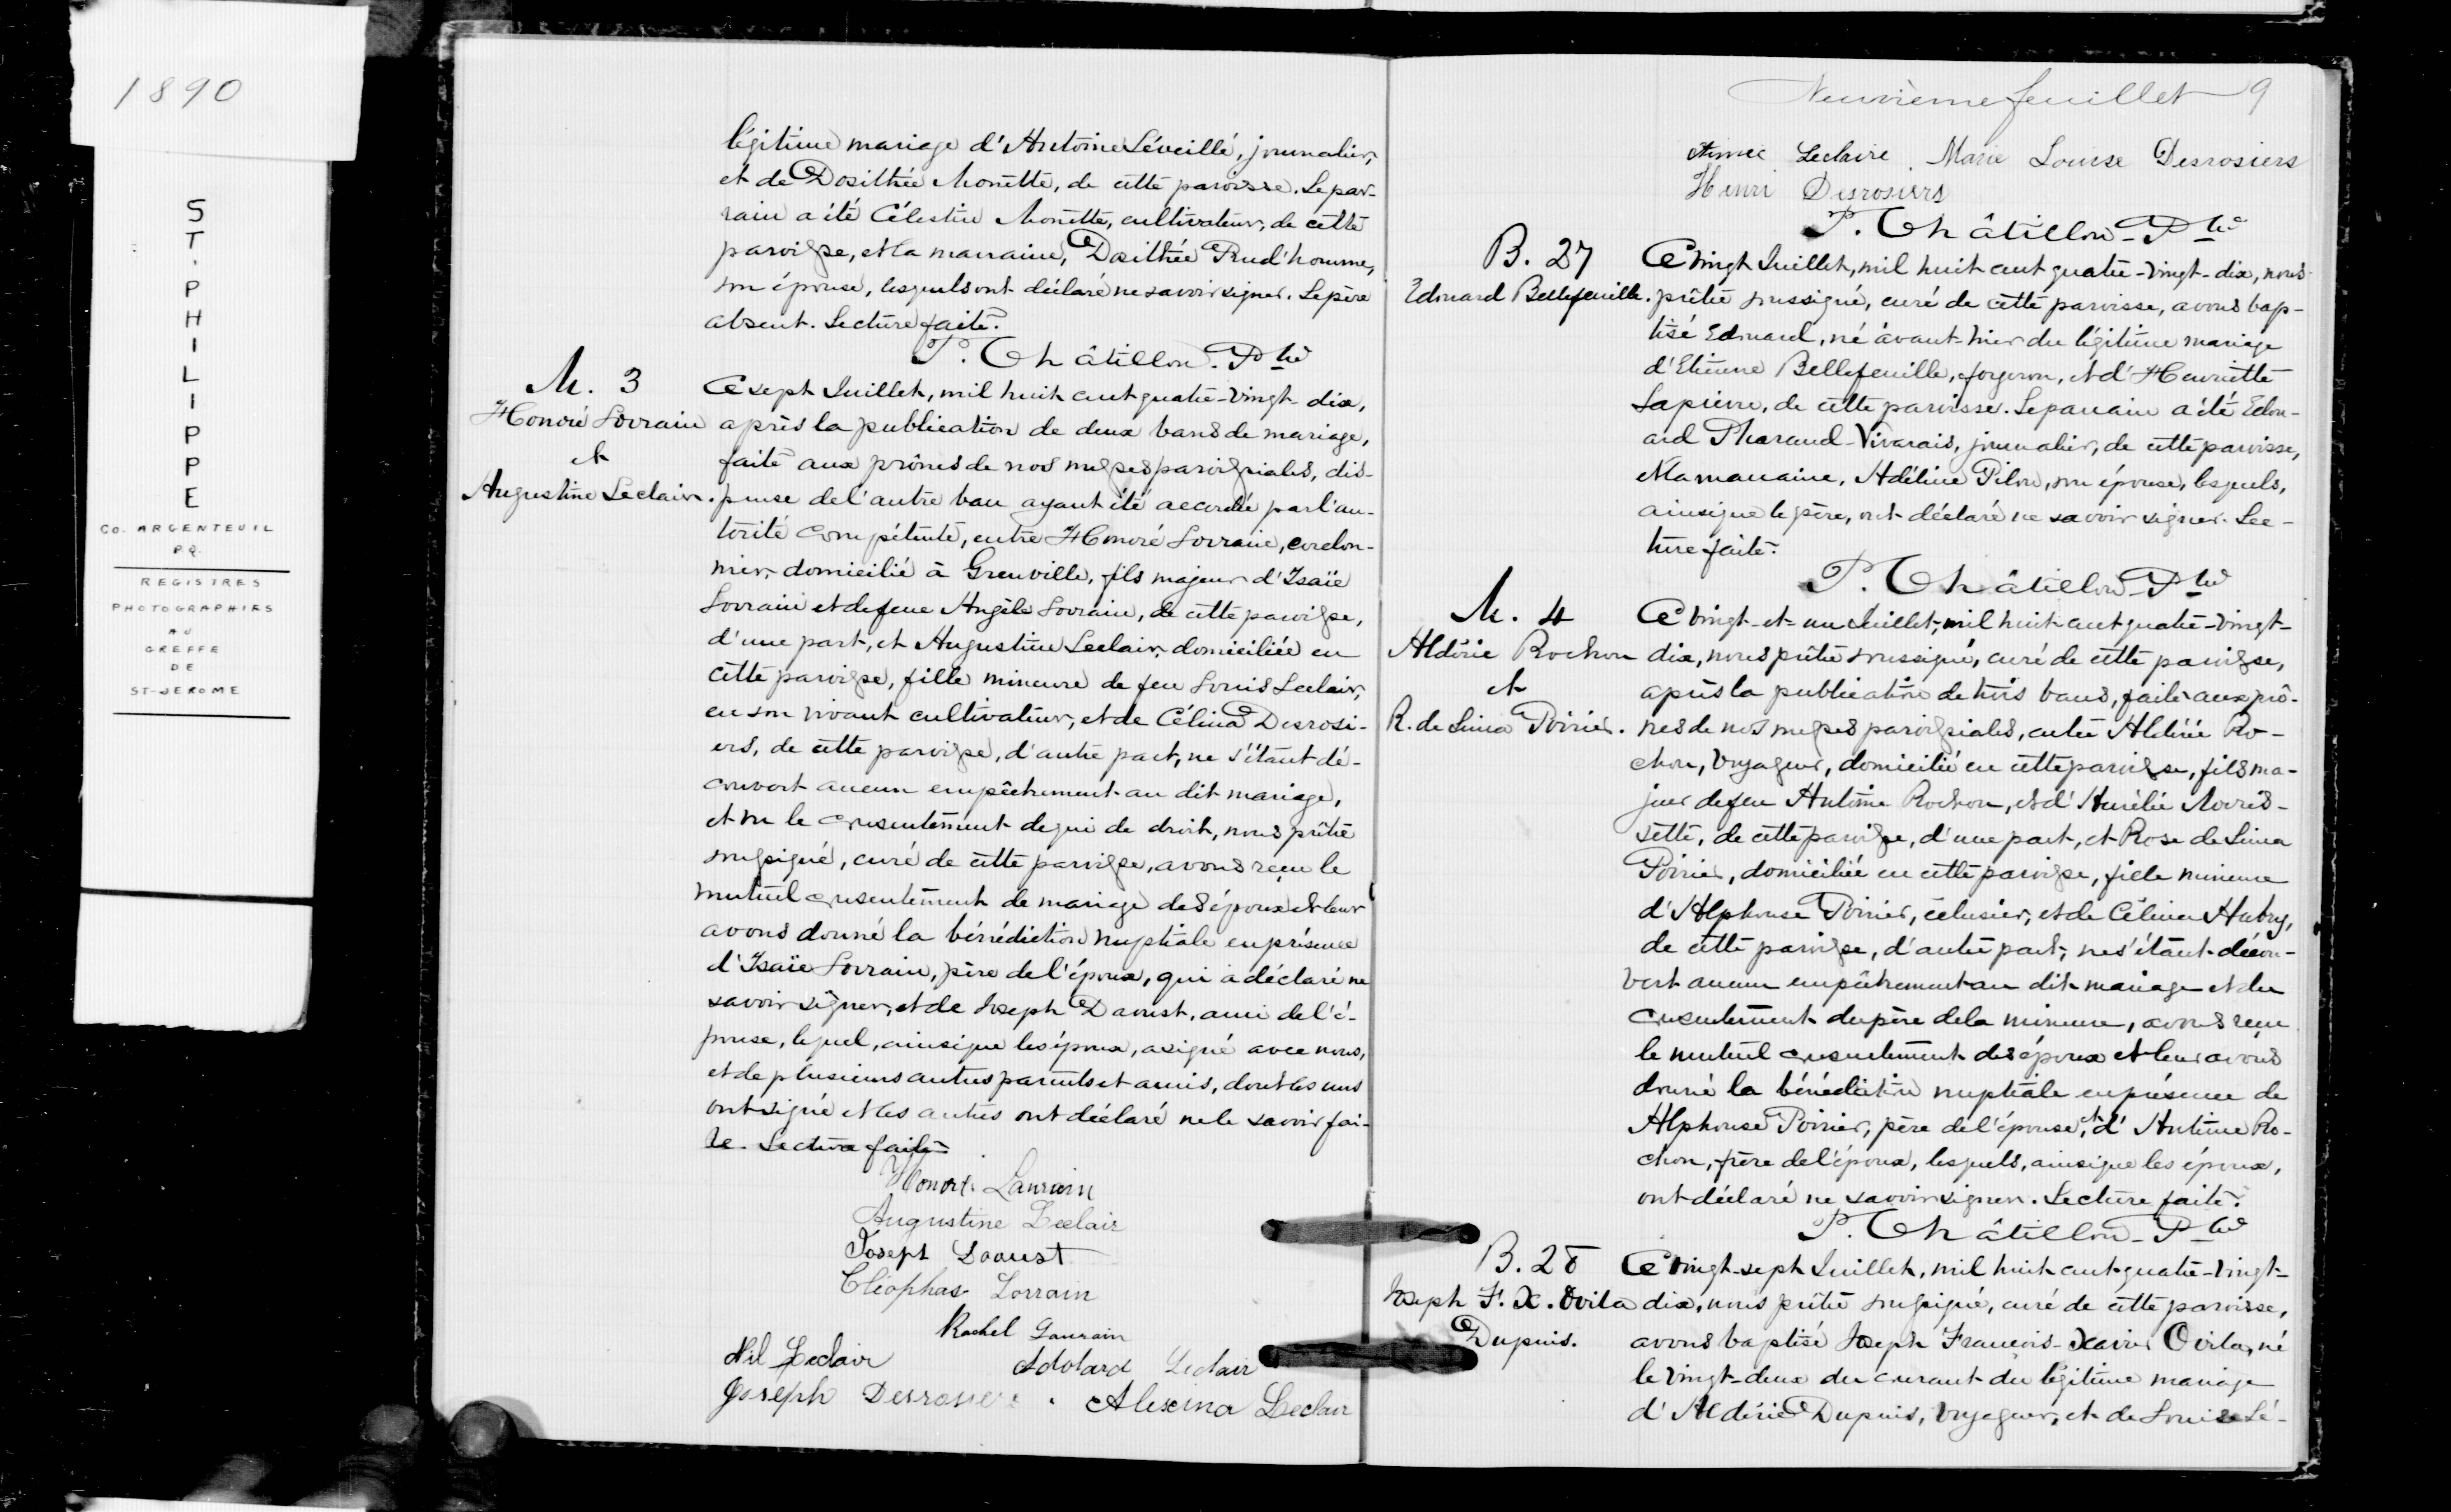 1890
ST. PHILIPPE
CO. ARGENTEUIL
P.Q.
REGISTRES
PHOTOGRAPHIES
AU
GREFFE
DE
ST-JEROME
légitime mariage d'Antoine Léveillé, journalier,
et de Dosithée Monette, de cette paroisse. Le par-
rain a été Célestin Monette, cultivateur, de cette
paroisse, et la marraine, Dosithée Prud'homme,
son épouse, lesquels ont déclaré ne savoir signer. Le père
absent. Lecture faite.
P. Châtillon. Ptre
M. 3
Honoré Lorrain
et
Augustine Leclair.
Ce sept Juillet, mil huit cent quatre-vingt-dix,
après la publication de deux bans de mariage,
faite aux prônes de nos messes paroissiales, dis-
pense de l'autre ban ayant été accordée par l'au-
torité compétente, entre Honoré Lorrain, cordon-
nier, domicilié à Grenville, fils majeur d'Isaïe
Lorrain et de feue Angèle Lorrain, de cette paroisse,
d'une part, et Augustine Leclair, domiciliée en
cette paroisse, fille mineure de feu Louis Leclair,
en son vivant cultivateur, et de Célina Desrosi-
ers, de cette paroisse, d'autre part, ne s'étant dé-
couvert aucun empêchement au dit mariage,
et vu le consentement de qui de droit, nous prêtre
soussigné, curé de cette paroisse, avons reçu le
mutuel consentement de mariage des époux et leur
avons donné la bénédiction nuptiale en présence
d'Isaïe Lorrain, père de l'époux, qui a déclaré ne
savoir signer, et de Joseph Daoust, ami de l'é-
pouse, lequel, ainsi que les époux, a signé avec nous,
et de plusieurs autres parents et amis, dont les uns
ont signé et les autres ont déclaré ne le savoir fai-
re. Lecture faite.
Honoré Laurain
Augustine Leclair
Joseph Daoust
Cléophas Lorrain
Rachel Laurain
Nil Leclair Adolard Leclair
Joseph Desrosiers. Alexina Leclair
Neuvième feuillet 9
Aimée Leclaire Marie Louise Desrosiers
Henri Desrosiers
P. Châtillon-Ptre
B. 27
Edouard Bellefeuille.
Ce vingt Juillet, mil huit cent quatre-vingt-dix, nous
prêtre soussigné, curé de cette paroisse, avons bap-
tisé Edouard, né avant-hier du légitime mariage
d'Etienne Bellefeuille, forgeron, et d'Henriette
Lapierre, de cette paroisse. Le parrain a été Edou-
ard Pharand-Vivarais, journalier, de cette paroisse,
et la marraine, Adéline Pilon, son épouse, lesquels,
ainsi que le père, ont déclaré ne savoir signer. Lec-
ture faite.
P. Châtillon-Ptre
M. 4
Aldéric Rochon
et
R. de Lima Poirier.
Ce vingt-et-un Juillet, mil huit cent quatre-vingt-
dix, nous prêtre soussigné, curé de cette paroisse,
après la publication de trois bans, faite aux prô-
nes de nos messes paroissiales, entre Aldéric Ro-
chon, voyageur, domicilié en cette paroisse, fils ma-
jeur de feu Antime Rochon, et d'Aurélie Morris-
sette, de cette paroisse, d'une part, et Rose de Lima
Poirier, domiciliée en cette paroisse, fille mineure
d'Alphonse Poirier, éclusier, et de Célina Aubry,
de cette paroisse, d'autre part, ne s'étant décou-
vert aucun empêchement au dit mariage et du
consentement du père de la mineure, avons reçu
le mutuel consentement des époux et leur avons
donné la bénédiction nuptiale en présence de
Alphonse Poirier, père de l'épouse, et d'Antime Ro-
chon, frère de l'époux, lesquels, ainsi que les époux,
ont déclaré ne savoir signer. Lecture faite.
P. Châtillon-Ptre
B. 28
Joseph F. X. Ovila
Dupuis.
Ce vingt-sept Juillet, mil huit cent quatre-vingt-
dix, nous prêtre soussigné, curé de cette paroisse,
avons baptisé Joseph François-Xavier Ovila, né
le vingt-deux du courant du légitime mariage
d'Aldéric Dupuis, voyageur, et de Louise Lé-